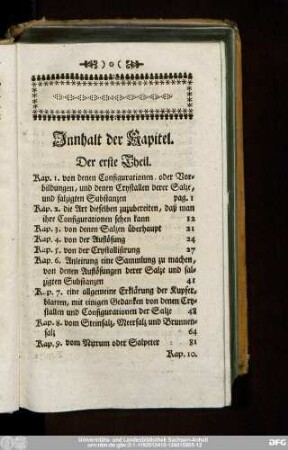 Innhalt der Kapitel.
Der erste Theil.
Kap. 1. von denen Configurationen, oder Vor-
bildungen, und denen Crystallen derer Salze,
und salzigten Substanzen pag. 1
Kap. 2. die Art dieselben zuzubereiten, daß man
ihre Configurationen sehen kann 12
Kap. 3. von denen Salzen überhaupt 21
Kap. 4. von der Auflösung 24
Kap. 5. von der Crystallisirung 27
Kap. 6. Anleitung eine Sammlung zu machen,
von denen Auflösungen derer Salze und sal-
zigten Substanzen 41
Kap. 7. eine allgemeine Erklärung der Kupfer-
blatten, mit einigen Gedanken von denen Cry-
stallen und Configurationen der Salze 48
Kap. 8. vom Steinsalz, Meersalz und Brunnen-
salz 64
Kap. 9. vom Nitrum oder Salpeter 81
Kap. 10.
Universitäts- und Landesbibliothek Sachsen-Anhalt
DFG